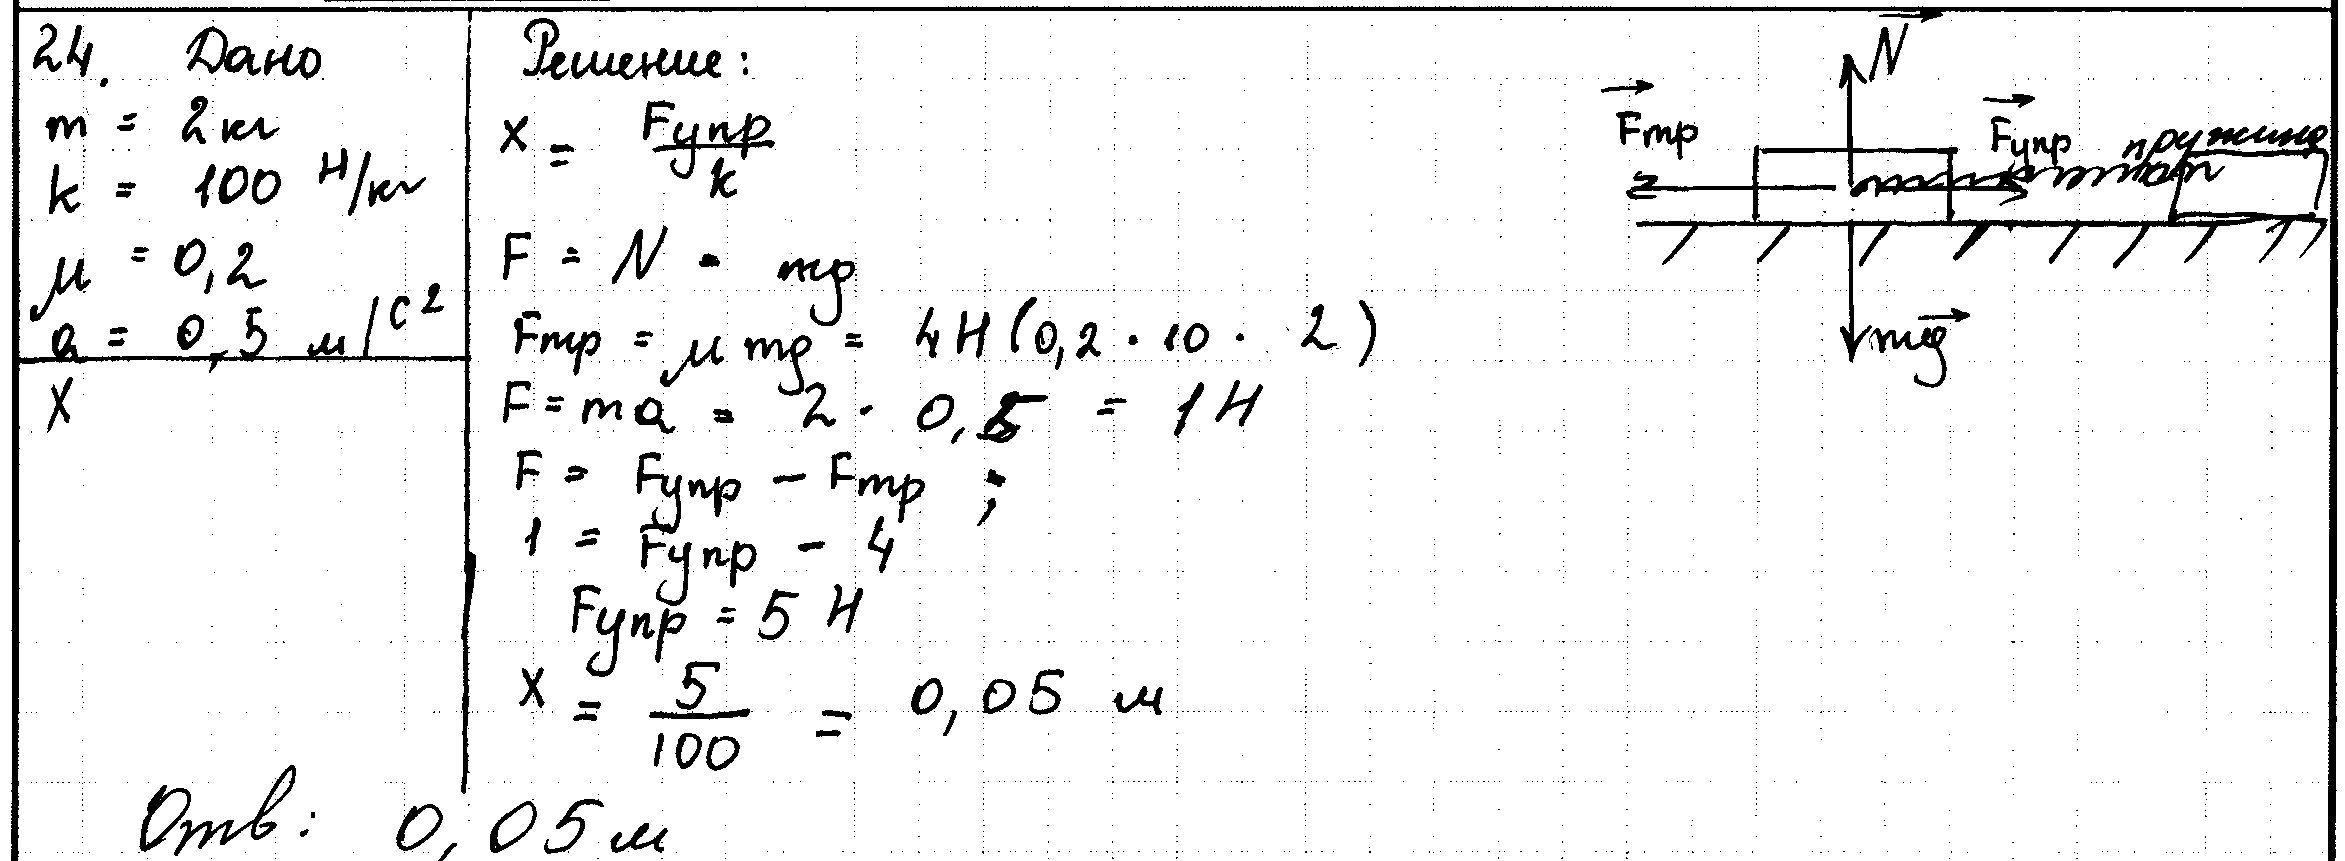 24. Дано
m = 2 кг
k = 100 Н/кг
μ = 0,2
a = 0,5 м/с²
x
Решение:
x = Fупр / k
F = N - mg
Fтр = μ mg = 4Н (0,2 · 10 · 2)
F = ma = 2 · 0,5 = 1 Н
F = Fупр - Fтр ;
1 = Fупр - 4
Fупр = 5 Н
x = 5 / 100 = 0,05 м
Отв: 0,05 м
N
Fтр
Fупр
пружина
mg